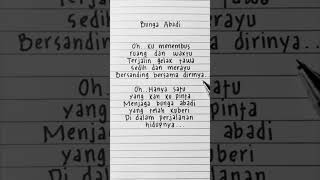 Bunga Abadi
Oh.. ku menembus
ruang dan waktu
Terjalin gelak tawa
sedih dan merayu
Bersanding bersama dirinya...
Oh.. Hanya satu
yang kan ku pinta
Menjaga bunga abadi
yang telah kuberi
Di dalam perjalanan
hidupnya...